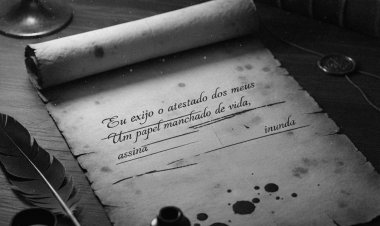 Eu exijo o atestado dos meus
Um papel manchado de vida,
assina inunda